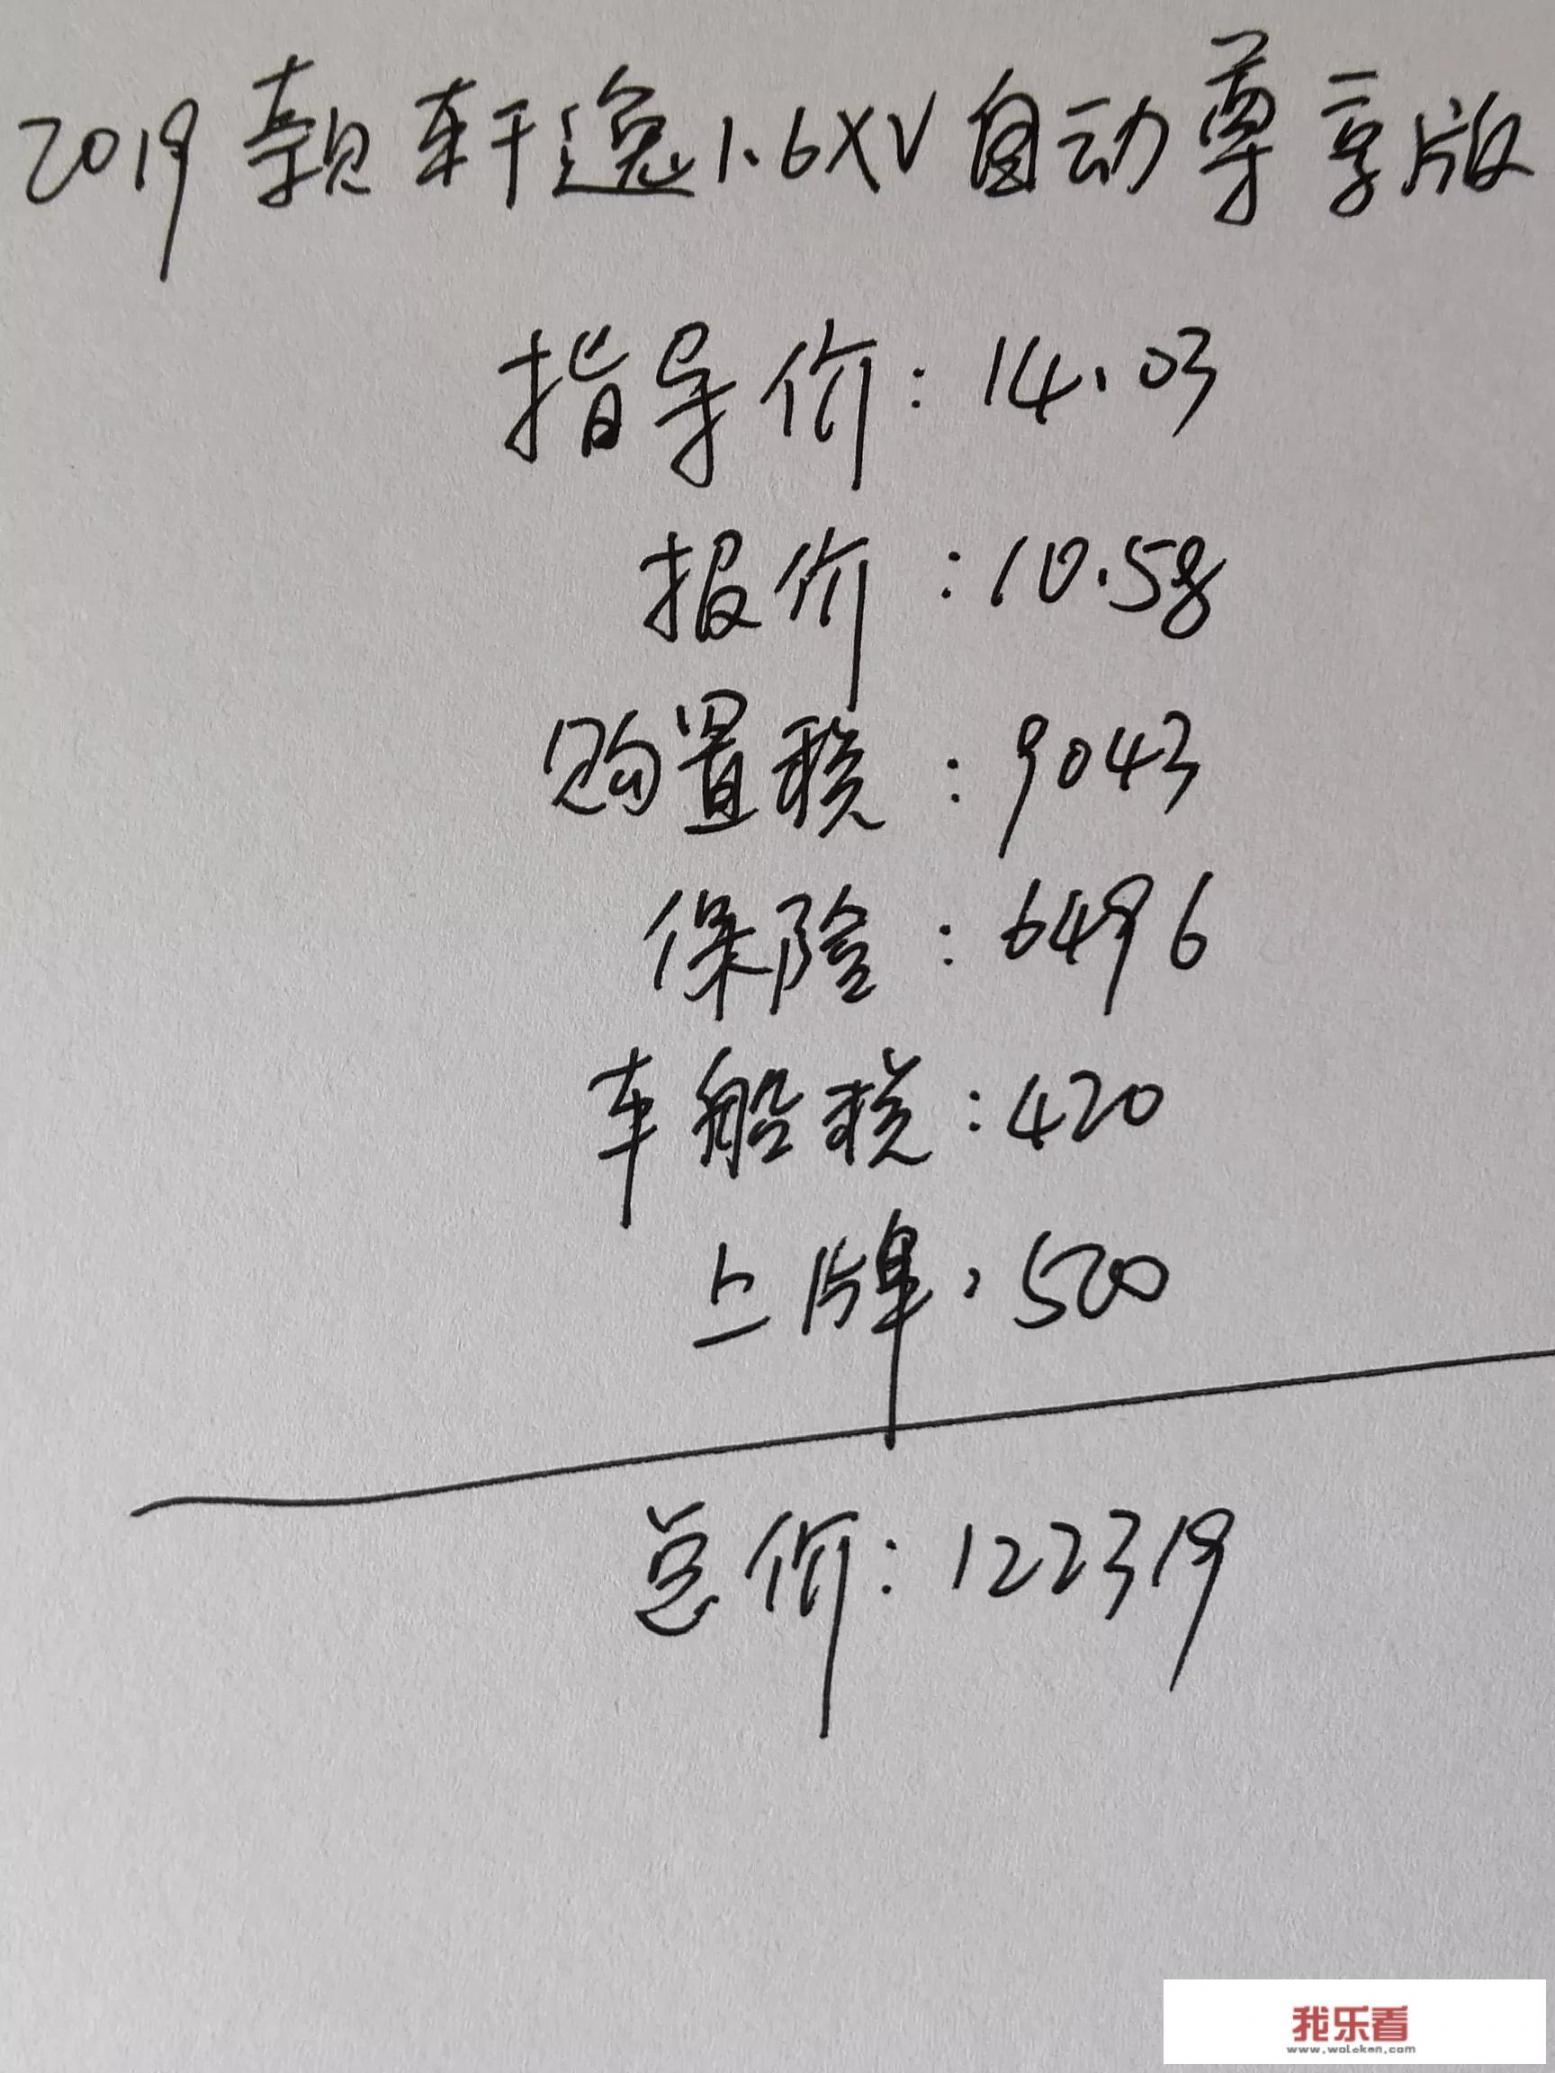 2019款轩逸1.6XV自动尊享版
指导价:14.03
报价:10.58
购置税:9043
保险:6496
车船税:420
上牌:500
总价:122319
我乐看
www.woleken.com